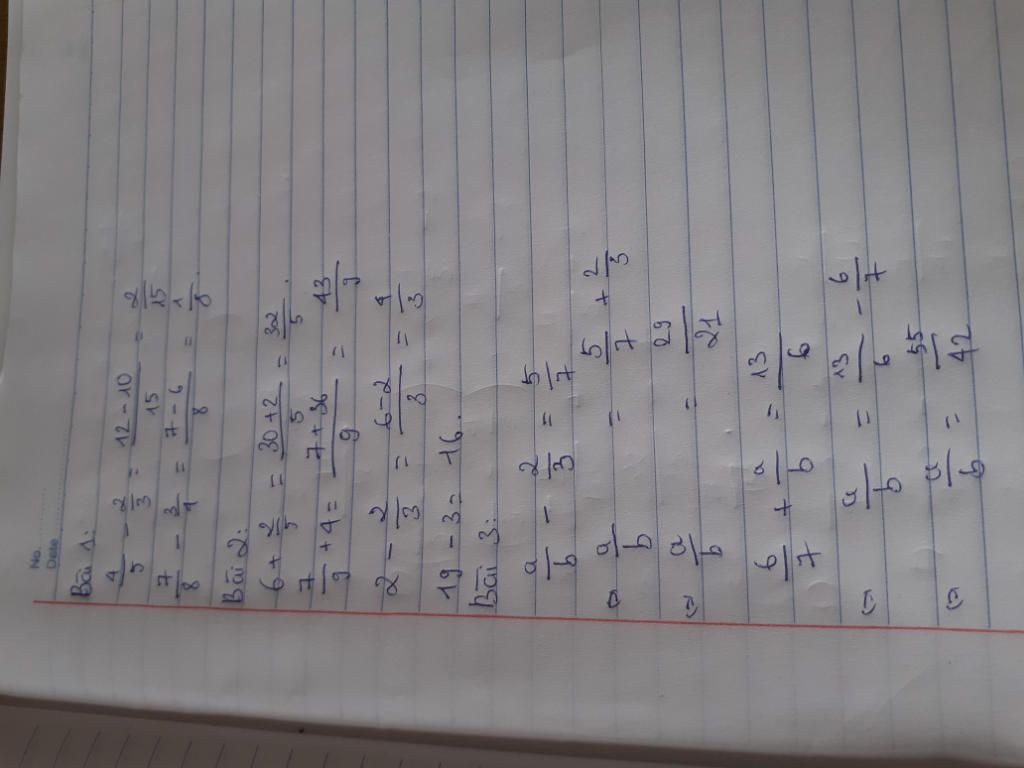 No.
Date
Bài 1:
4/5 - 2/3 = (12 - 10)/15 = 2/15
7/8 - 3/4 = (7 - 6)/8 = 1/8.
Bài 2:
6 + 2/5 = (30 + 2)/5 = 32/5.
7/9 + 4 = (7 + 36)/9 = 43/9
2 - 2/3 = (6 - 2)/3 = 4/3
19 - 3 = 16.
Bài 3:
a/b - 2/3 = 5/7
(=) a/b = 5/7 + 2/3
(=) a/b = 29/21
6/7 + a/b = 13/6
(=) a/b = 13/6 - 6/7
(=) a/b = 55/42